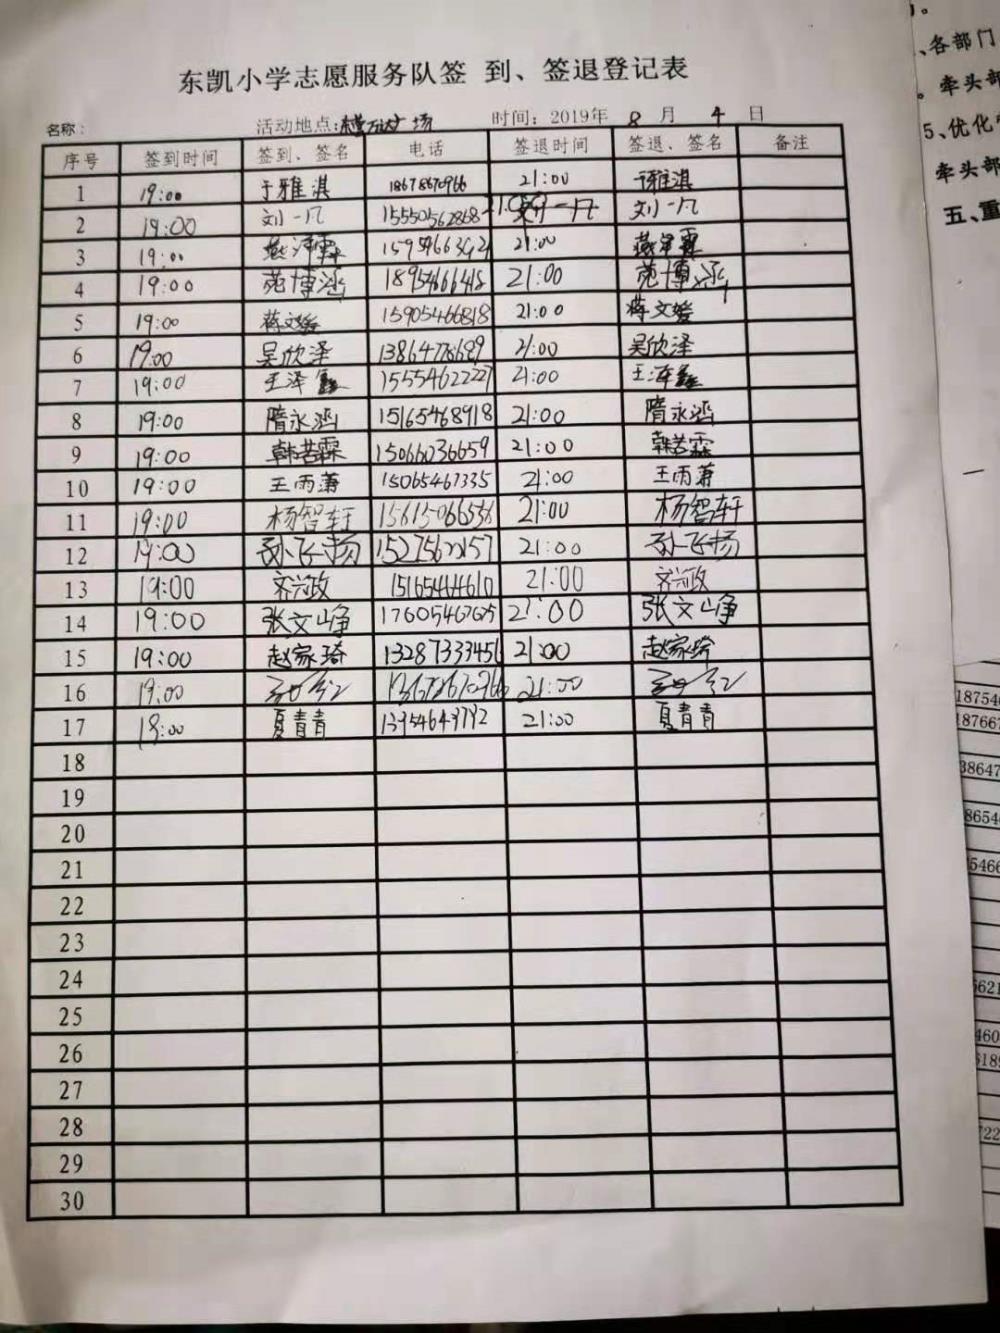 东凯小学志愿服务队签 到、签退登记表
名称： 活动地点： 万达广场 时间：2019年 8 月 4 日
序号 签到时间 签到、签名 电话 签退时间 签退、签名 备注
1 19:00 于雅淇 18678670966 21:00 于雅淇
2 19:00 刘一凡 15550562868 刘一凡
3 19:00 21:00
4 19:00 苑博涵 18954666418 21:00 苑博涵
5 19:00 蒋文媛 15905466818 21:00 蒋文媛
6 19:00 吴欣泽 21:00 吴欣泽
7 19:00 王泽鑫 15554622227 21:00 王泽鑫
8 19:00 隋永涵 15165468918 21:00 隋永涵
9 19:00 15066036659 21:00
10 19:00 王雨萧 15065467335 21:00 王雨萧
11 19:00 杨智轩 15615066536 21:00 杨智轩
12 19:00 孙飞扬 21:00 孙飞扬
13 19:00 齐兴政 21:00 齐兴政
14 19:00 张文峥 17605467675 21:00 张文峥
15 19:00 赵家琦 13287333456 21:00 赵家琦
16 19:00 21:00
17 18:00 夏青青 21:00 夏青青
18
19
20
21
22
23
24
25
26
27
28
29
30
、各部门
牵头部
5、优化
牵头部
五、重
18754
18766
38647
8654
5466
6621
460
6189
722